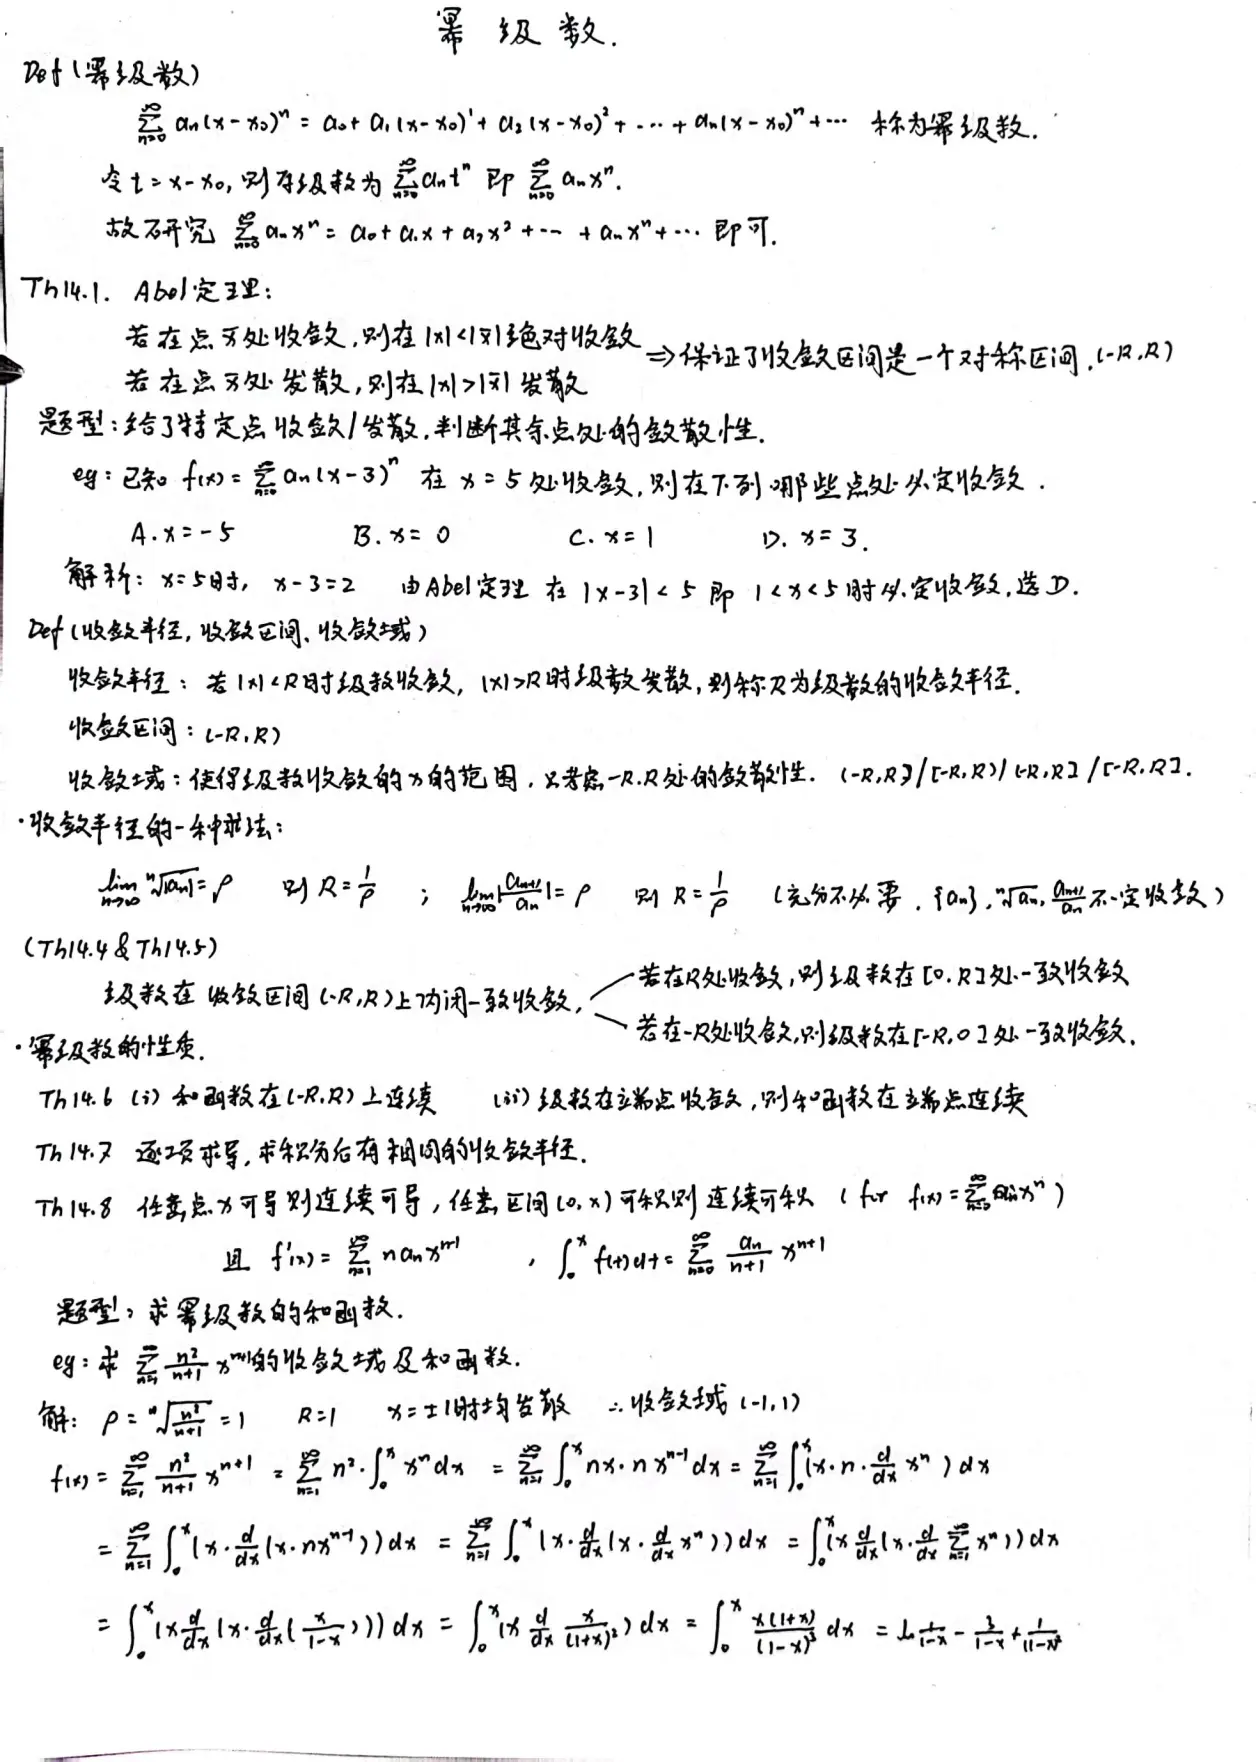 幂级数.
Def(幂级数)
∑_{n=0}^∞ aₙ(x-x₀)ⁿ = a₀+a₁(x-x₀)¹+a₂(x-x₀)²+…+aₙ(x-x₀)ⁿ+… 称为幂级数.
令t=x-x₀,则有级数为 ∑_{n=0}^∞ aₙtⁿ 即 ∑_{n=0}^∞ aₙxⁿ.
故研究 ∑_{n=0}^∞ aₙxⁿ = a₀+a₁x+a₂x²+…+aₙxⁿ+… 即可.
Th14.1. Abel定理:
若在点x̄处收敛,则在|x|<|x̄|绝对收敛
若在点x̄处发散,则在|x|>|x̄|发散
⇒保证了收敛区间是一个对称区间.(-R,R)
题型:给了特定点收敛/发散,判断其余点处的敛散性.
eg:已知 f(x)=∑_{n=0}^∞ aₙ(x-3)ⁿ 在 x=5处收敛,则在下列哪些点处必定收敛.
A.x=-5 B.x=0 C.x=1 D.x=3.
解析: x=5时, x-3=2 由Abel定理 在 |x-3|<5 即 1<x<5时必定收敛,选D.
Def(收敛半径,收敛区间、收敛域)
收敛半径:若|x|<R时级数收敛, |x|>R时级数发散,则称R为级数的收敛半径.
收敛区间:(-R,R)
收敛域:使得级数收敛的x的范围,只考虑-R.R处的敛散性. (-R,R)/[-R,R)/(-R,R]/[-R,R].
·收敛半径的一种求法:
lim_{n→∞} ⁿ√|aₙ|=ρ 则 R=1/ρ ; lim_{n→∞}|aₙ₊₁/aₙ|=ρ 则 R=1/ρ (充分不必要.{aₙ},ⁿ√aₙ,aₙ₊₁/aₙ不一定收敛)
(Th14.4&Th14.5)
级数在收敛区间(-R,R)上内闭一致收敛,
若在R处收敛,则级数在[0,R]处一致收敛
若在-R处收敛,则级数在[-R,0]处一致收敛.
·幂级数的性质.
Th14.6 (i) 和函数在(-R,R)上连续 (ii)级数在端点收敛,则和函数在端点连续
Th14.7 逐项求导,求积分后有相同的收敛半径.
Th14.8 任意点x可导则连续可导,任意区间(0,x)可积则连续可积 (for f(x)=∑_{n=0}^∞ aₙxⁿ)
且 f'(x)=∑_{n=1}^∞ naₙxⁿ⁻¹ , ∫₀ˣ f(t)dt=∑_{n=0}^∞ aₙ/(n+1) xⁿ⁺¹
题型:求幂级数的和函数.
eg:求 ∑_{n=1}^∞ n²/(n+1) xⁿ⁺¹的收敛域及和函数.
解: ρ=ⁿ√(n²/(n+1))=1 R=1 x=±1时均发散 ∴收敛域(-1,1)
f(x)=∑_{n=1}^∞ n²/(n+1) xⁿ⁺¹ = ∑_{n=1}^∞ n²·∫₀ˣ xⁿdx = ∑_{n=1}^∞ ∫₀ˣ nx·nxⁿ⁻¹dx = ∑_{n=1}^∞ ∫₀ˣ(x·n·d/dx xⁿ)dx
= ∑_{n=1}^∞ ∫₀ˣ(x·d/dx(x·nxⁿ⁻¹))dx = ∑_{n=1}^∞ ∫₀ˣ(x·d/dx(x·d/dx xⁿ))dx = ∫₀ˣ(x d/dx(x·d/dx ∑_{n=1}^∞ xⁿ))dx
= ∫₀ˣ(x d/dx(x·d/dx(x/(1-x))))dx = ∫₀ˣ(x d/dx x/(1+x)²)dx = ∫₀ˣ x(1+x)/(1-x)³ dx = ln 1/(1-x) - 3/(1-x) + 1/(1-x)²